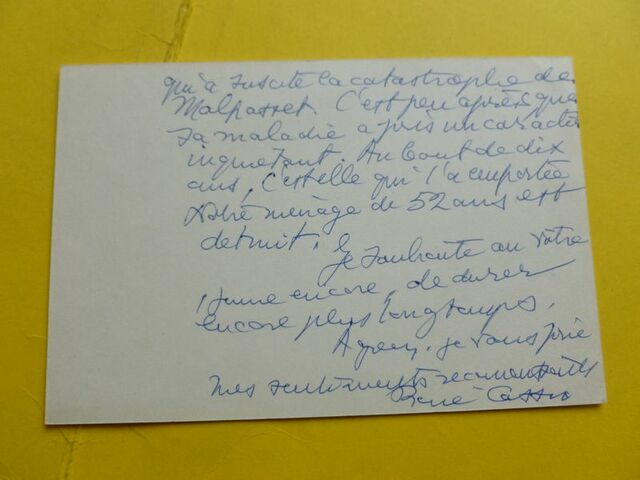 qu'a suscité la catastrophe de
Malpasset. C'est peu après que
sa maladie a pris un caractère
inquiétant. Au bout de dix
ans, c'est elle qui l'a emportée
Notre ménage de 52 ans est
détruit. 
Je souhaite au vôtre
jeune encore, de durer
encore plus longtemps.
Agréez, je vous prie
mes sentiments reconnaissants
René Cassin